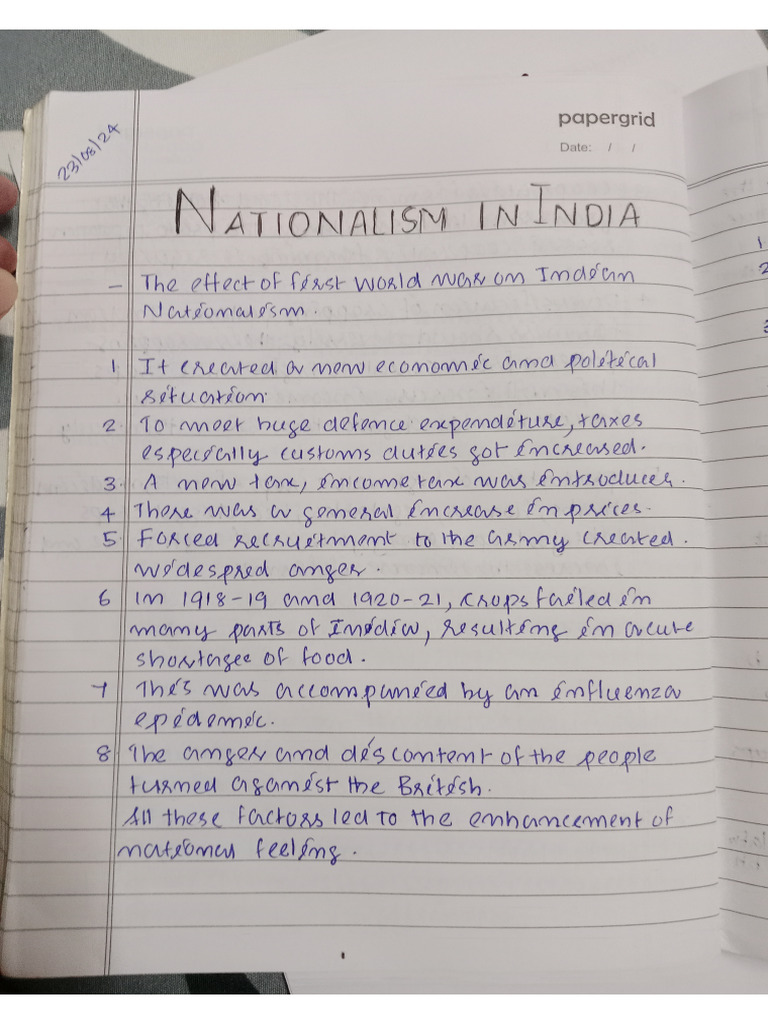 papergrid
Date: / /
23/08/24
NATIONALISM IN INDIA
- The effect of first World war on Indian
Nationalism.
1 It created a new economic and political
situation.
2 To meet huge defence expenditure, taxes
especially customs duties got increased.
3. A new tax, income tax was introduces.
4 There was a general increase in prices.
5 Forced recruitment to the army created.
widespred anger.
6 In 1918-19 and 1920-21, crops failed in
many parts of India, resulting in acute
shortagee of food.
7 This was accompanied by an influenza
epidemic.
8 The anger and discontent of the people
turned against the British.
All these factors led to the enhancement of
national feeling.
1
2
3